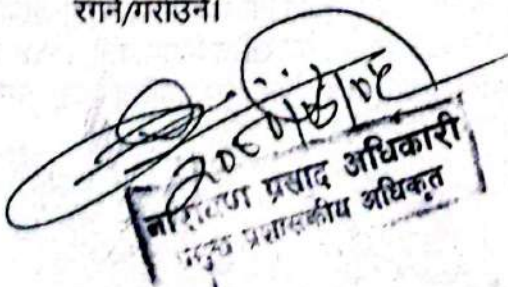 रंगने/गराउने।
नारायण प्रसाद अधिकारी
प्रमुख प्रशासकीय अधिकृत